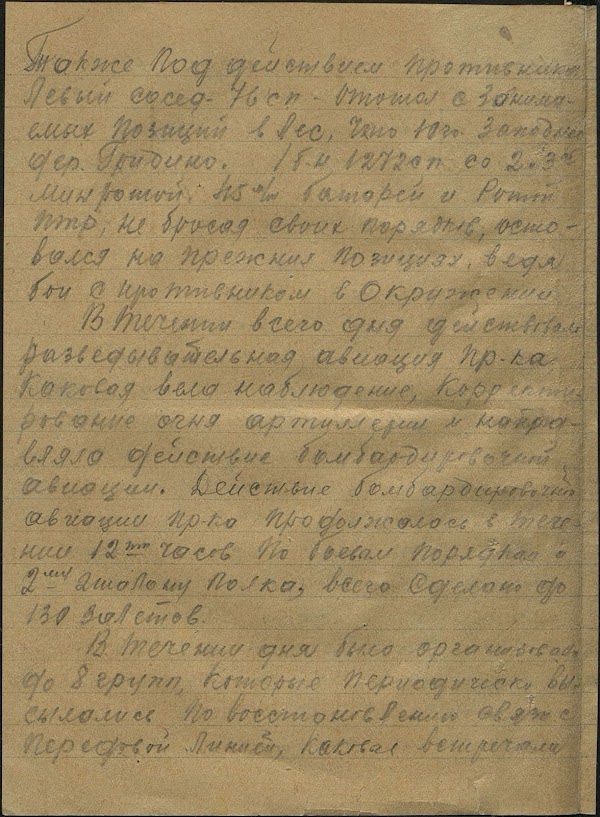 Также Под действием противника
Левый сосед - 76 сп - Отошол с Занима-
емых Позиций в Лес, Что Юго. Западнее
дер. Гридино. 1 б-н 1272 сп со 2 и 3
Минротой, 45 м/м батареи и Ротой
птр, не бросая своих порядков, оста-
вался на прежних Позициях, ведя
бои с противником в Окружении
В Течении всего дня действовала
разведывательная авиация пр-ка,
Каковая вела наблюдение, Корректи-
рование огня артиллерии и напра-
вляла действие бомбардировочной
авиации. Действие бомбардировочной
авиации пр-ка Продолжалось в Тече-
нии 12ти часов По боевым порядкам и
2му Эшалону Полка, всего Сделано до
130 Залетов.
В Течении дня было организовано
до 8 групп, Которые Периодически Вы-
сылались По восстановлению связи с
Передовой Линией, каковая встречала